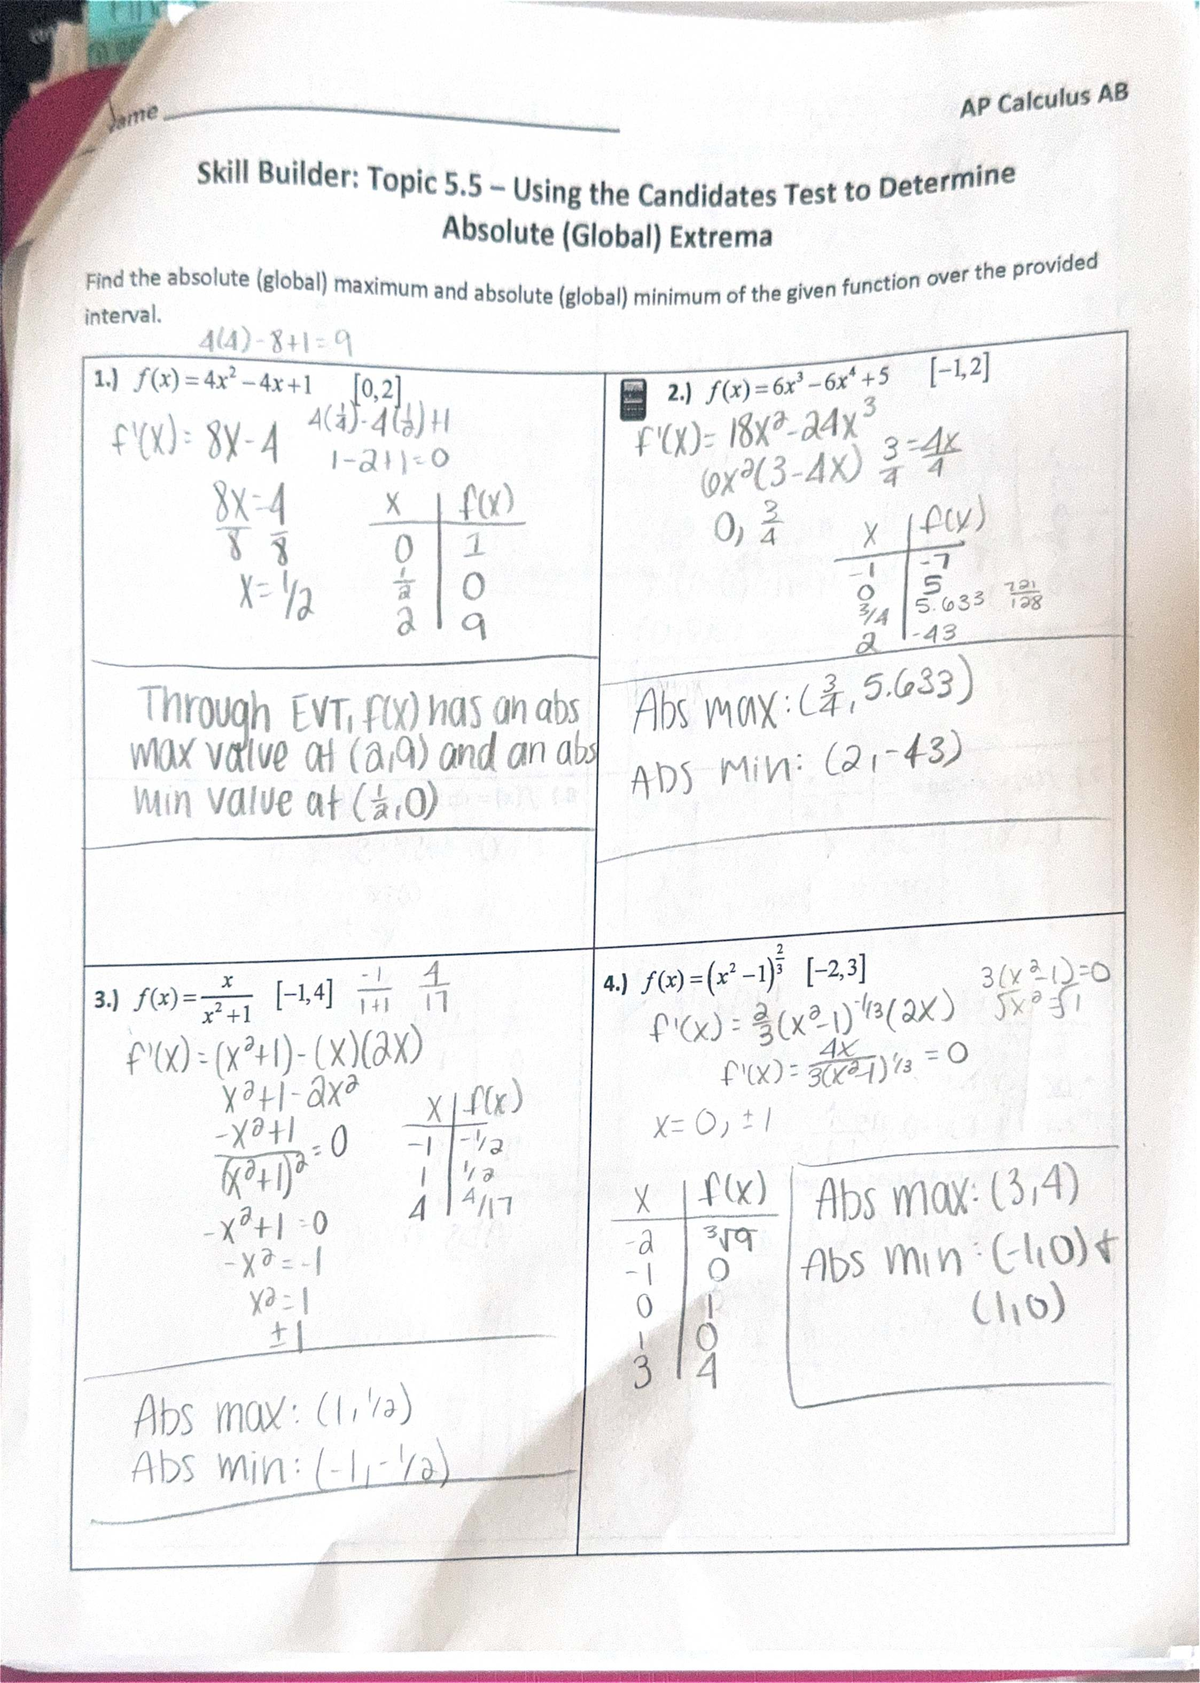 Name
AP Calculus AB
Skill Builder: Topic 5.5 – Using the Candidates Test to Determine
Absolute (Global) Extrema
Find the absolute (global) maximum and absolute (global) minimum of the given function over the provided
interval.
4(4)-8+1=9
1.) f(x)=4x²–4x+1 [0,2]
f'(x)= 8x-4
4(1/4)-4(1/2)+1
1-2+1=0
8x=4
8 8
x=1/2
x f(x)
0 1
1/2 0
2 9
Through EVT, f(x) has an abs
max value at (2,9) and an abs
min value at (1/2,0)
2.) f(x)=6x³–6x⁴+5 [–1,2]
f'(x)= 18x²-24x³
6x²(3-4x) 3/4=4x/4
0, 3/4
x f(x)
-1 -7
0 5
3/4 5.633 721/128
2 -43
Abs max: (3/4, 5.633)
Abs min: (2,-43)
3.) f(x)=x/(x²+1) [–1,4] -1/(1+1) 4/17
f'(x)=(x²+1)-(x)(2x)
x²+1-2x²
-x²+1/(x²+1)²=0
-x²+1=0
-x²=-1
x²=1
±1
x f(x)
-1 -1/2
1 1/2
4 4/17
Abs max: (1,1/2)
Abs min: (-1,-1/2)
4.) f(x)=(x²–1)^(2/3) [–2,3]
3(x²-1)=0
√x²=√1
f'(x)=2/3(x²-1)^(-1/3)(2x)
f'(x)=4x/3(x²-1)^(1/3) =0
x=0,±1
x f(x)
-2 ³√9
-1 0
0 1
1 0
3 4
Abs max: (3,4)
Abs min: (-1,0)+
(1,0)